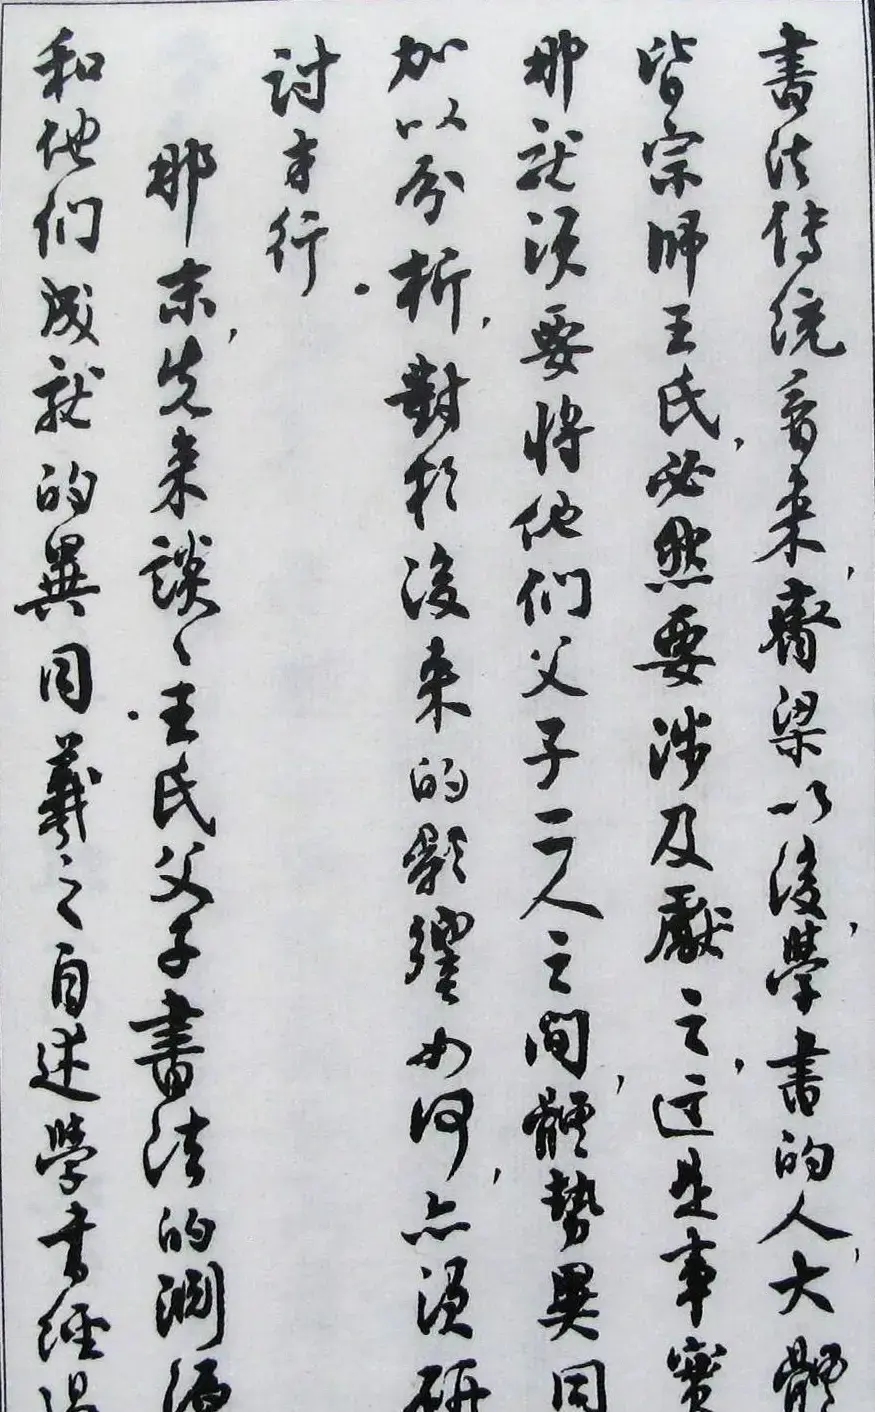 書法傳統看来,齊梁以後,學書的人,大體
皆宗師王氏,必然要涉及獻之,这是事實
那就須要將他们父子二人之間,體勢異同
加以分析,對於後来的影響如何,亦須研
討才行.
那末,先来談〻王氏父子書法的淵源
和他们成就的異同.羲之自述學書經過